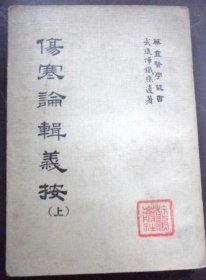 華鼎醫學叢書
武進惲鐵樵遺著
傷寒論輯義按
(上)